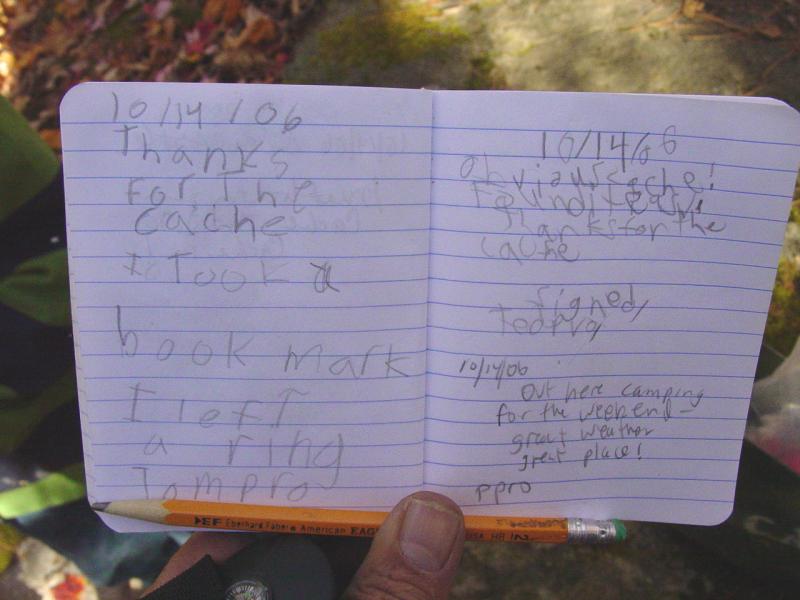 10/14/06
Thanks
For The
cache
I Took a
book mark
I lefT
a ring
Tompro
10/14/06
Obviaurs cache!
Foundit easy!
Thanks for the
cache
signed,
Tedpro
10/14/06
Out here camping
for the weekend -
great weather
great place!
ppro
EF Eberhard Faber American EAGLE USA HB 2